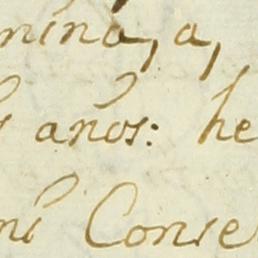 nina, a,
años: he
mi Conse